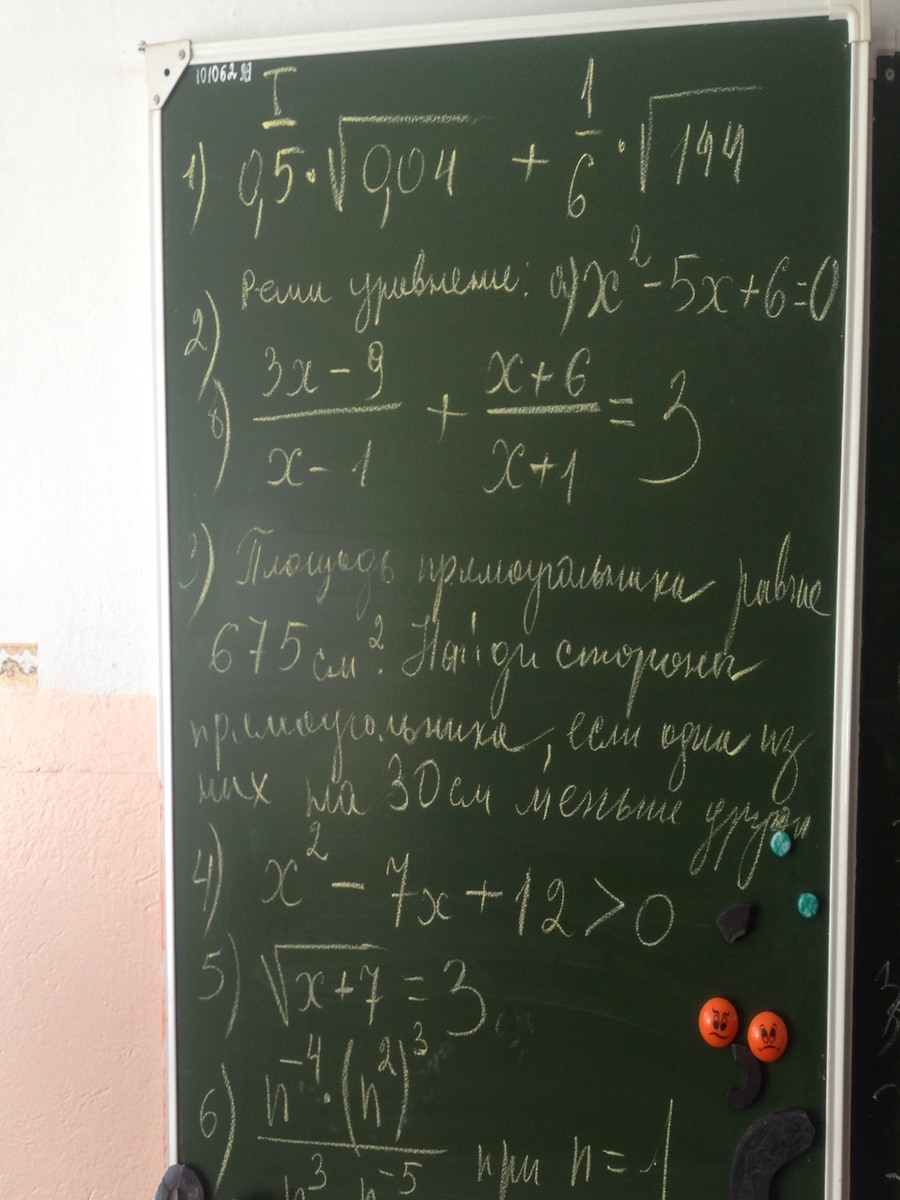 101062
I
1) 0,5·√0,04 + 1/6·√144
2) Реши уравнение: а) x² - 5x + 6 = 0
в) (3x - 9)/(x - 1) + (x + 6)/(x + 1) = 3
3) Площадь прямоугольника равна
675 см². Найди стороны
прямоугольника, если одна из
них на 30 см меньше другой
4) x² - 7x + 12 > 0
5) √x+7 = 3
6) (n⁻⁴·(n²)³)/(n³ n⁻⁵) при n = 1